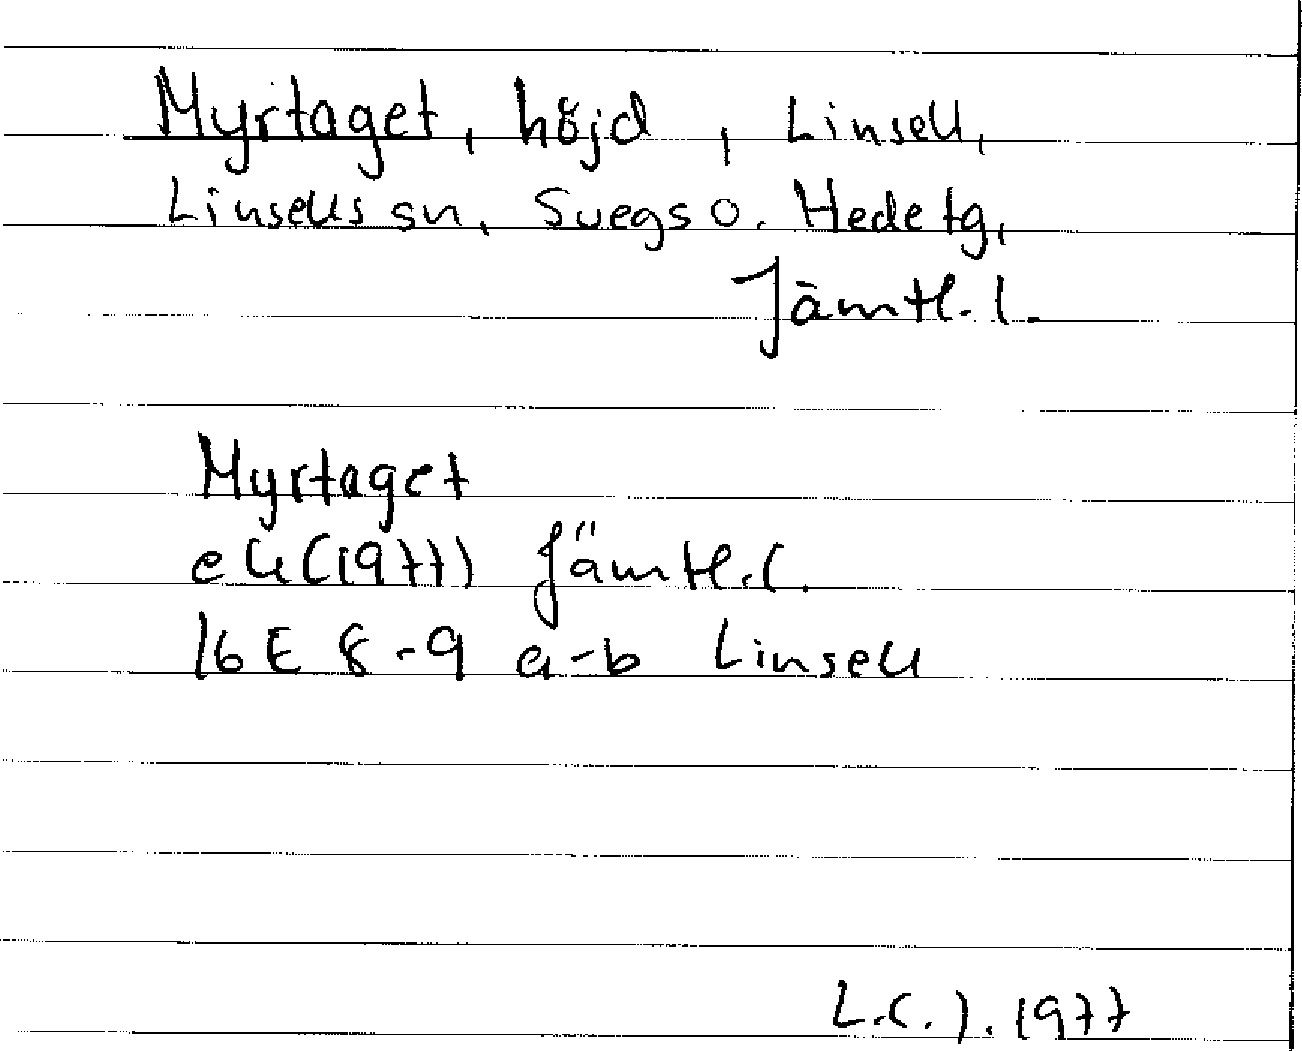 Myrtaget, höjd, Linsell,
Linsells sn, Svegs o. Hede tg,
Jämtl. l.
Myrtaget
ek (1977) Jämtl. l.
16 E 8-9 a-b Linsell
L.C.J. 1977